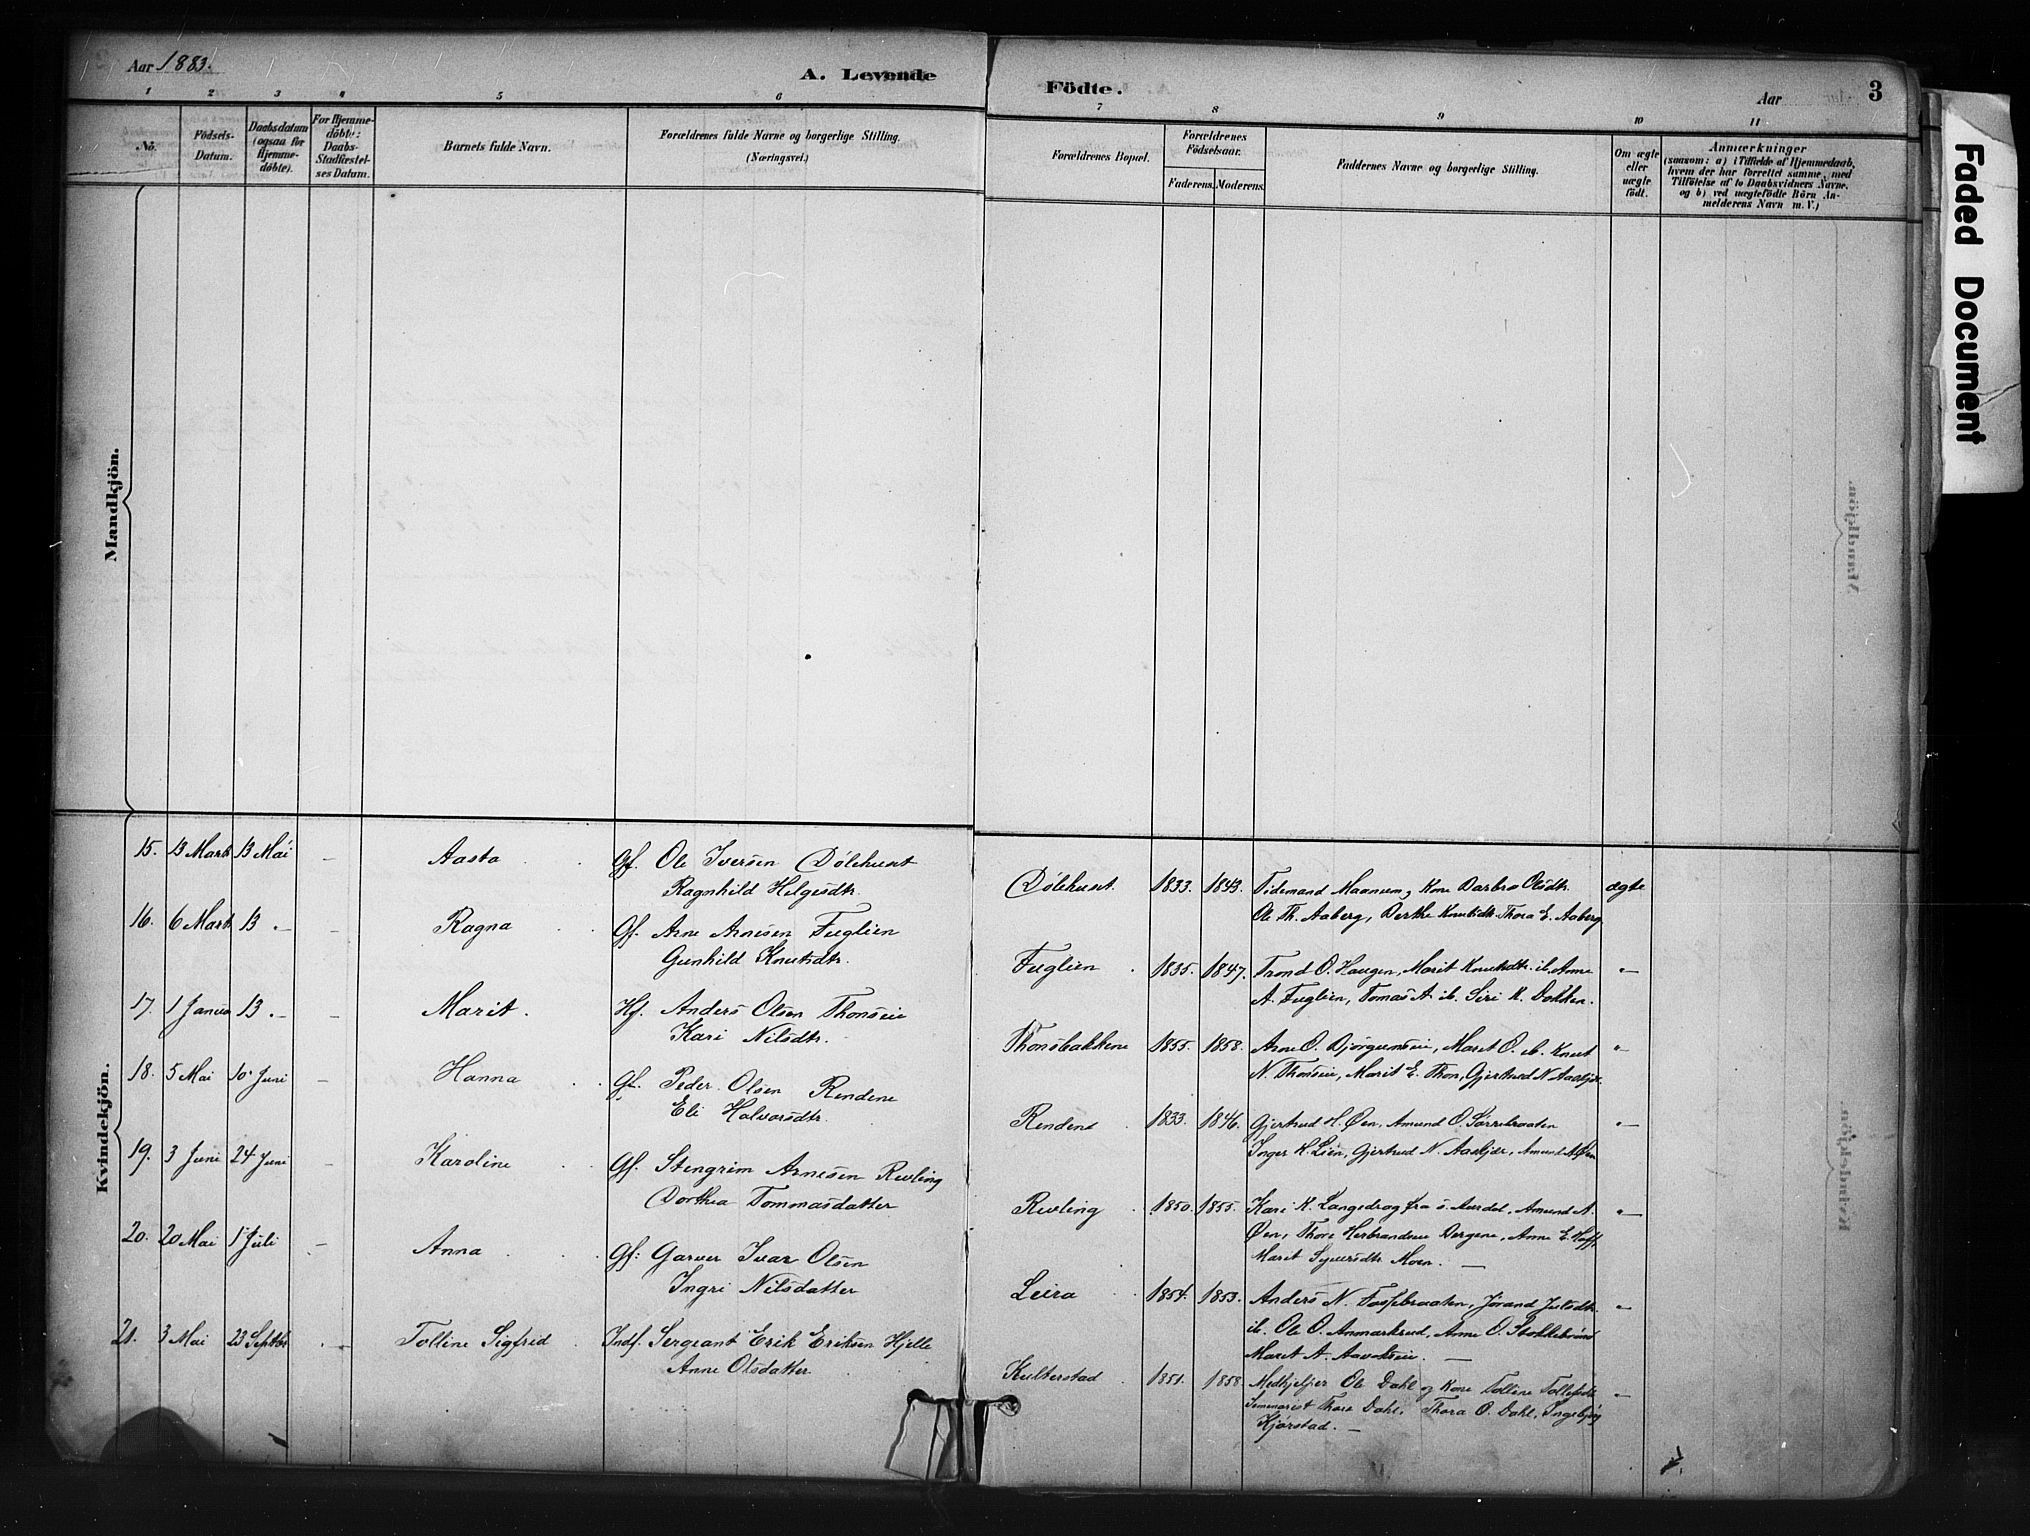 Aar 1883.
A. Levende
Födte.
Aar
3
1 2 3 4 5 6 7 8 9 10 11
No.
Födsels-
Datum.
Daabsdatum
(ogsaa for
Hjemme-
döbte).
For Hjemme-
döbte:
Daabs-
Stadfæstel-
ses Datum.
Barnets fulde Navn.
Forældrenes fulde Navne og borgerlige Stilling.
(Næringsvei.)
Forældrenes Bopæl.
Forældrenes
Födselsaar.
Faderens. Moderens.
Faddernes Navne og borgerlige Stilling.
Om ægte
eller
uægte
födt.
Anmærkninger
(saasom: a) i Tilfælde af Hjemmedaab,
hvem der har forrettet samme, med
Tilföielse af to Daabsvidners Navne,
og b) ved uægtefödte Börn An-
melderens Navn m. V.)
Faded Document
Mandkjön.
Kvindekjön.
15. 13 Marts 13 Mai – Aasta Gf. Ole Iversen Dölehuset
Ragnhild Helgesdtr.
Dölehuset. 1833. 1843. Tidemand Maanum, Kone Barbro Olsdtr. ægte
Ole Th. Aaberg, Berthe Knutsdtr. Thora E. Aaberg
16. 6 Marts 13 – – Ragna Gf. Arne Arnesen Fuglien
Gunhild Knutsdtr.
Fuglien 1835. 1847. Trond O. Haugen, Marit Knutsdtr. ib. Anne "–
A. Fuglien, Tomas A. ib. Siri K. Dokken.
17. 1 Janua 13 – – Marit. Hf. Anders Olsen Thonseie
Kari Nilsdtr.
Thonsbakkene 1855. 1858. Arne O. Björgumseie, Marit O. ib. Knut "–
N. Thonseie, Marit E. Thon, Gjertrud N. Aasljer.
18. 5 Mai 10 Juni – Hanna Gf. Peder Olsen Rendene
Eli Halvorsdtr.
Rendene 1833. 1846. Gjertrud H. Øen, Amund O. Sörrebraaten "–
Inger K. Lien, Gjertrud N. Aasljer, Amund A. Øen
19. 3 Juni 24 Juni – Karoline Gf. Stengrim Arnesen Revling
Dorthea Tommasdatter
Revling 1850. 1855. Kari K. Langedrag fra S. Aurdal, Amund A. "–
Øen, Thore Herbrandene Bergene, Anne E. Hoff
Marit Syversdtr Moen. –
20. 20 Mai 1 Juli – Anna Gf: Garver Ivar Olsen
Ingri Nilsdatter
Leira 1854. 1853. Anders N. Fossebraaten, Jörand Julsdtr. "–
ib. Ole O. Anmarkrud, Anne O. Stokkebrönd
Marit A. Aavolseie. –
21. 3 Mai 23 Septbr – Tolline Sigfrid Indf. Sergeant Erik Eriksen Hjelle
Anne Olsdatter
Kulterstad 1851. 1858. Medhjelper Ole Dahl og Kone Tolline Tollefsdr. "–
Seminarist Thore Dahl, Thora O. Dahl, Ingebjørg
Kjørstad. –